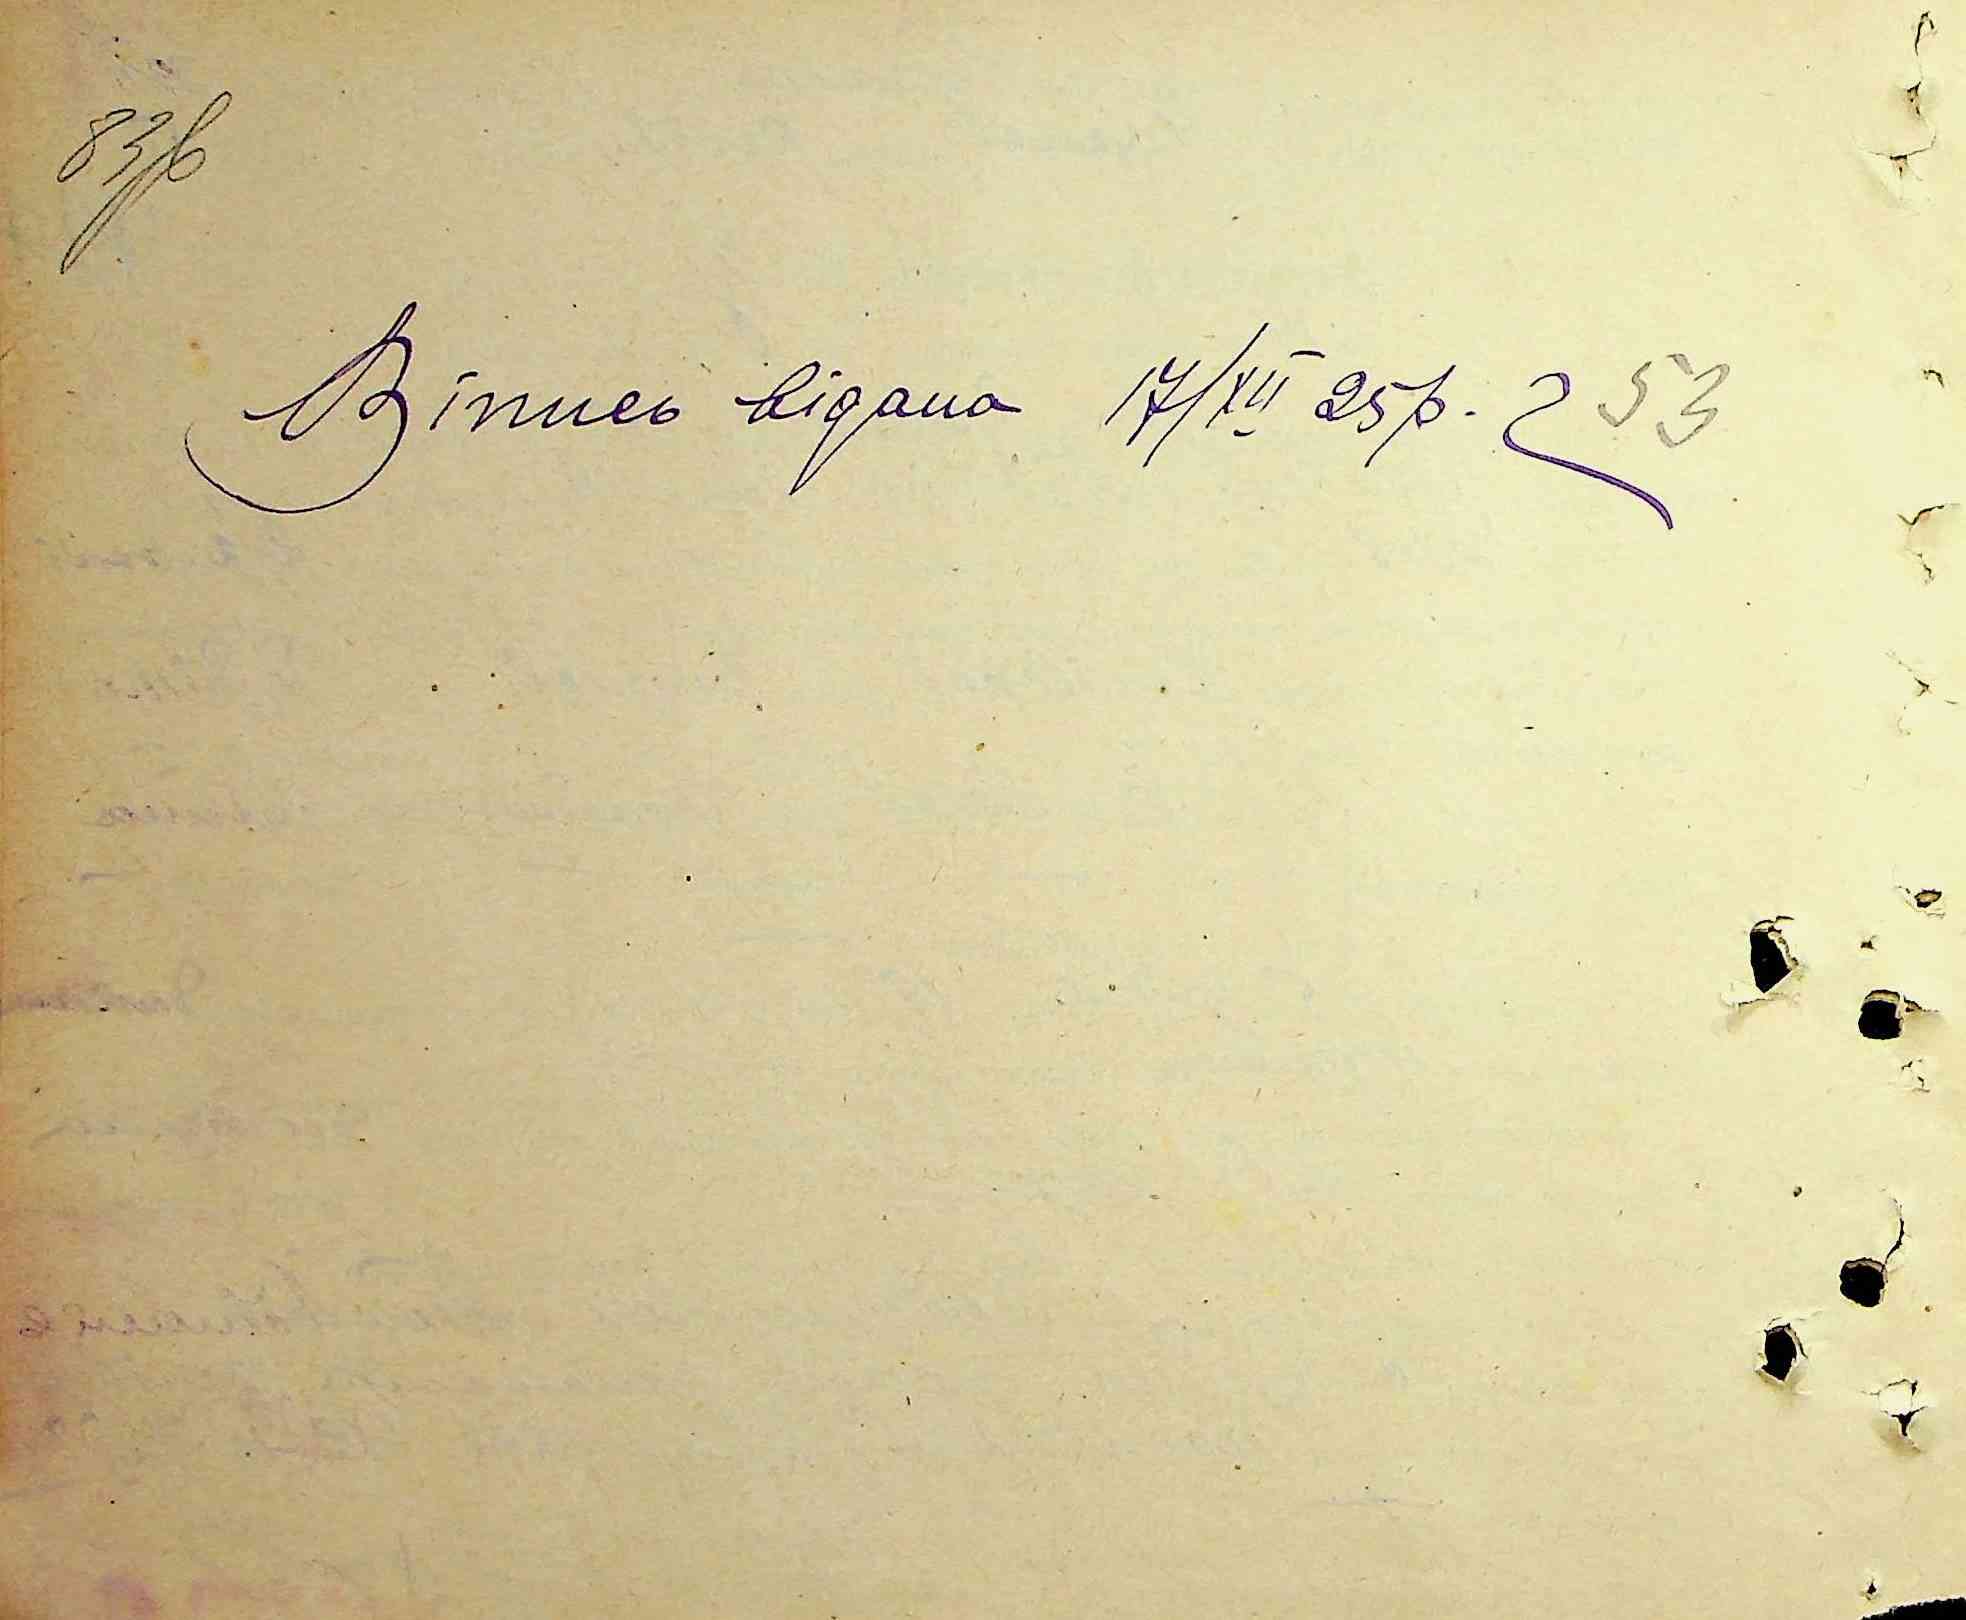 83/в
Випись видана 17/XII 25 р.
53